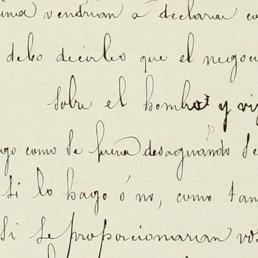 vendrian á declarar
debo decirles que el negoc
sobre el hombro y vi
go como se fuera desaguando se
si lo hago ó no, como tan
si se proporcionaran vos